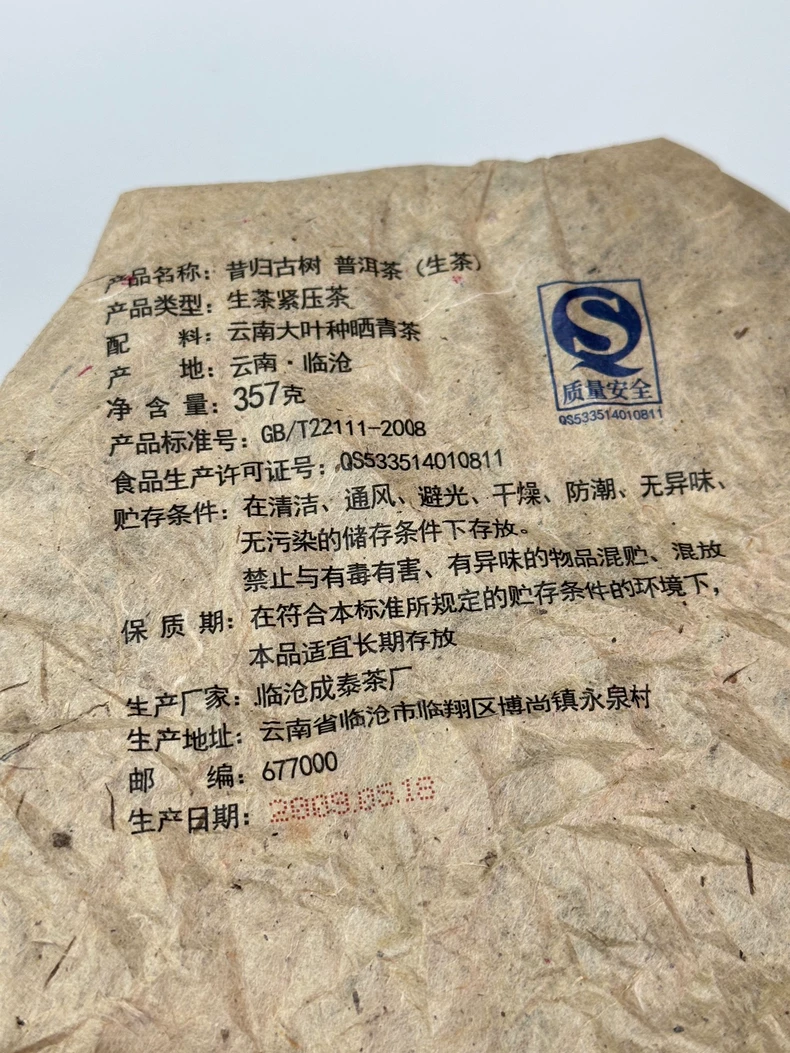 产品名称：昔归古树 普洱茶（生茶）
产品类型：生茶紧压茶
配 料：云南大叶种晒青茶
产 地：云南·临沧
净 含 量：357克
产品标准号：GB/T22111-2008
食品生产许可证号：QS533514010811
贮存条件：在清洁、通风、避光、干燥、防潮、无异味、
无污染的储存条件下存放。
禁止与有毒有害、有异味的物品混贮、混放
保 质 期：在符合本标准所规定的贮存条件的环境下，
本品适宜长期存放
生产厂家：临沧成泰茶厂
生产地址：云南省临沧市临翔区博尚镇永泉村
邮 编：677000
生产日期：2009.05.18
QS
质量安全
QS533514010811